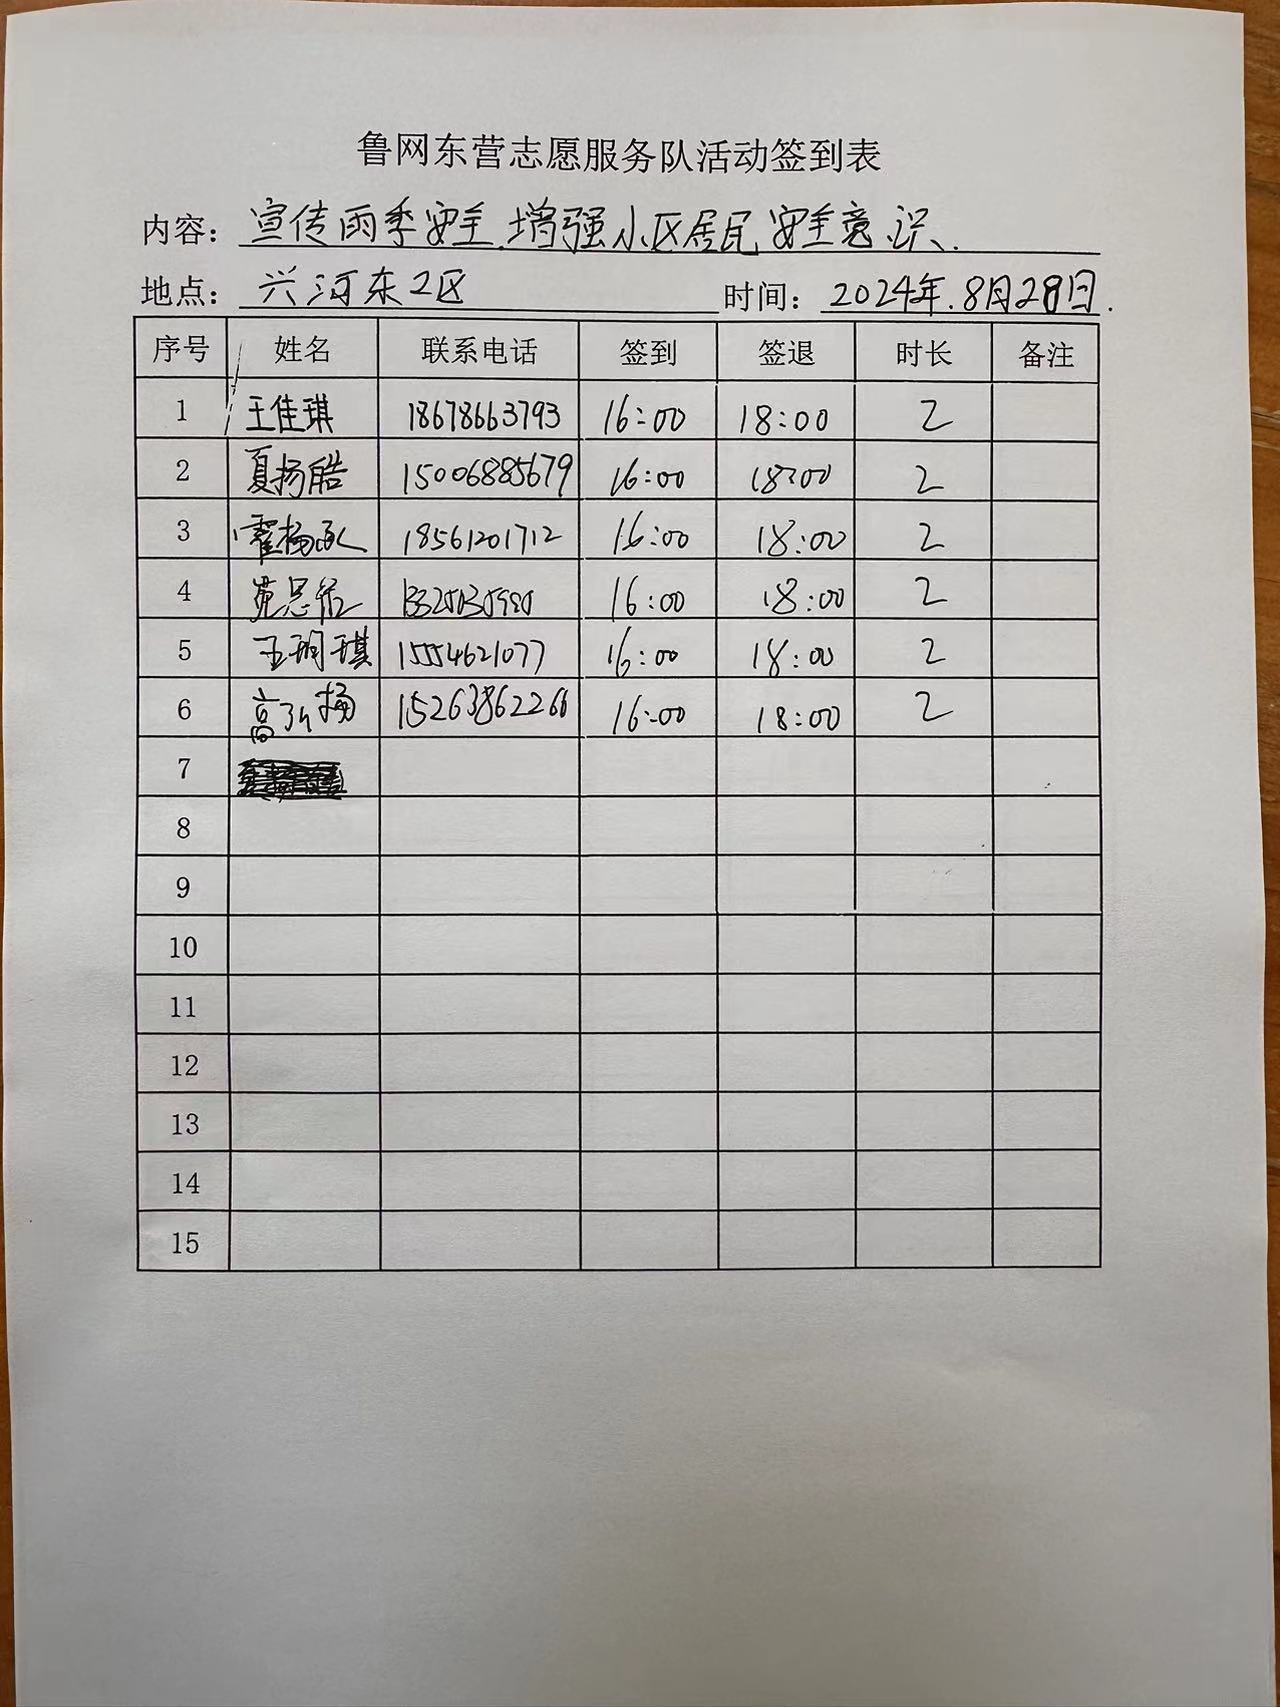 鲁网东营志愿服务队活动签到表
内容：宣传雨季安全，增强小区居民安全意识.
地点：兴河东2区 时间：2024年.8月28日.
序号 姓名 联系电话 签到 签退 时长 备注
1 王佳琪 18678663793 16:00 18:00 2
2 夏扬皓 15006885679 16:00 18:00 2
3 霍杨 18561201712 16:00 18:00 2
4 16:00 18:00 2
5 王玥琪 15554621077 16:00 18:00 2
6 高 扬 15263862266 16:00 18:00 2
7
8
9
10
11
12
13
14
15